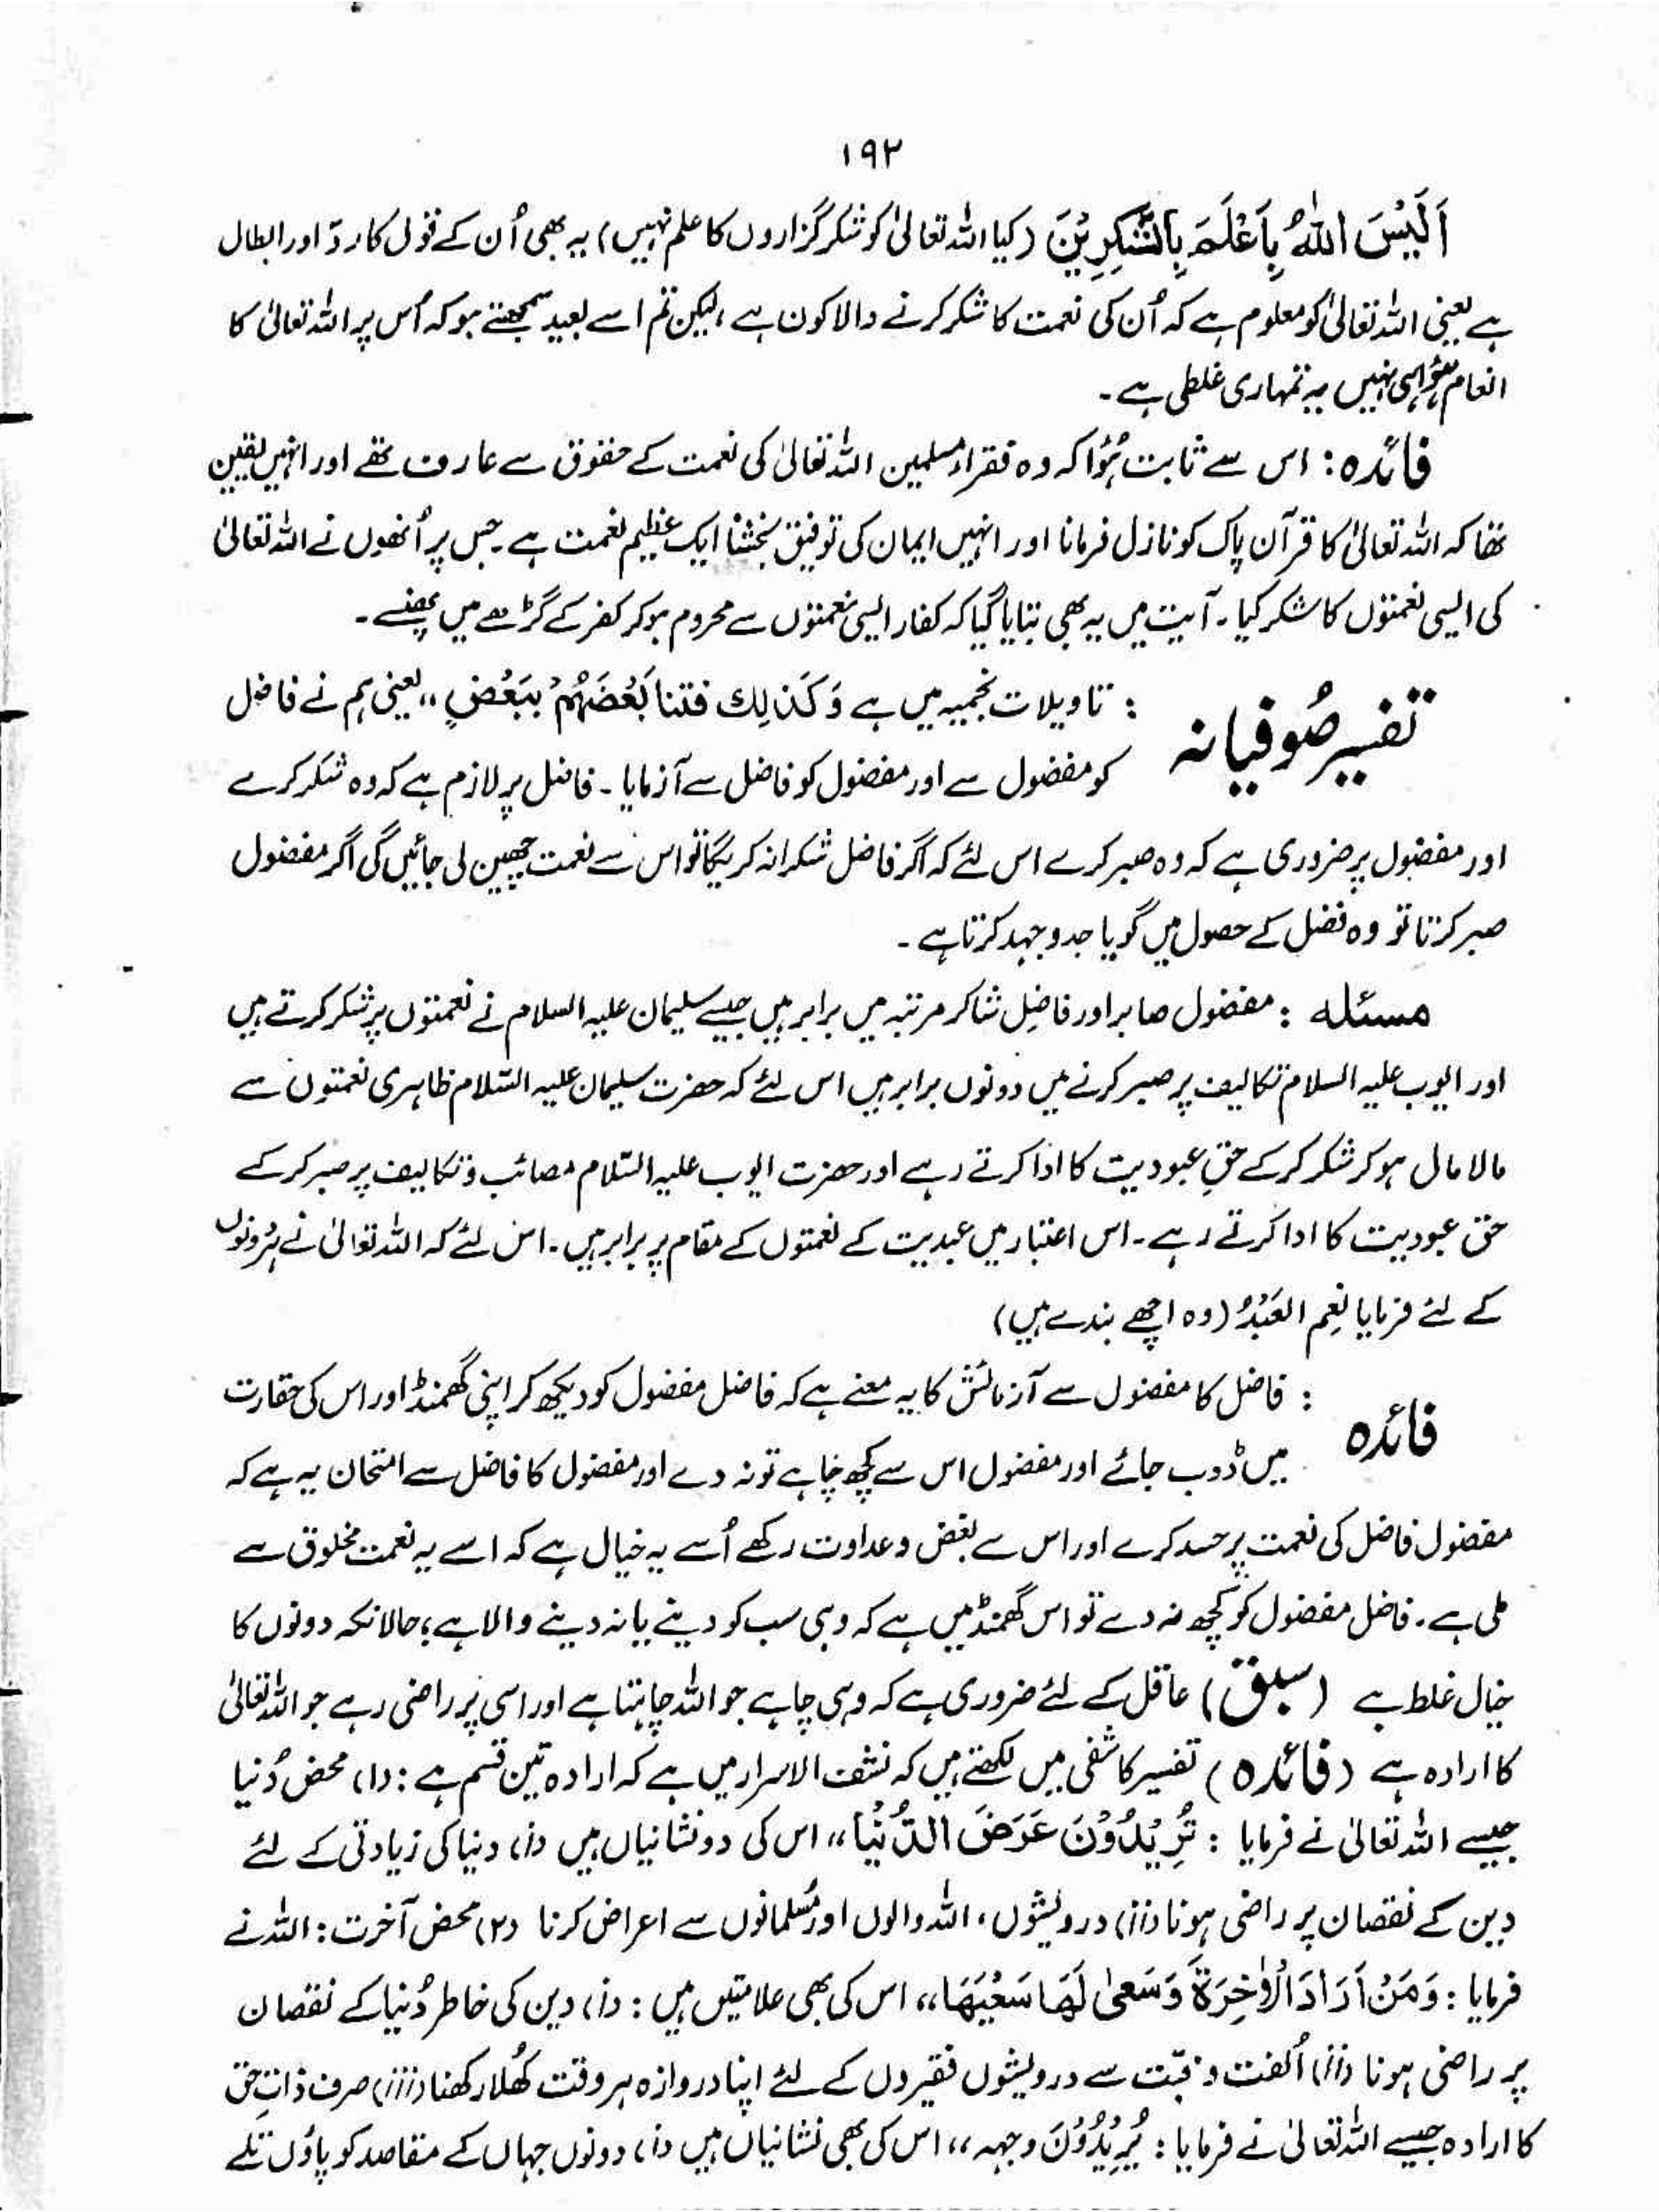 ۱۹۲
اَلَیْسَ اللّٰہُ بِاَعْلَمَ بِالشّٰکِرِیْنَ (کیا اللہ تعالیٰ کو شکرگزاروں کا علم نہیں) یہ بھی اُن کے قول کا ردّ اور ابطال
ہے یعنی اللہ تعالیٰ کو معلوم ہے کہ اُن کی نعمت کا شکر کرنے والا کون ہے، لیکن تم اسے بعید سمجھتے ہو کہ اُس پر اللہ تعالیٰ کا
انعام ہُوا ہی نہیں یہ تمہاری غلطی ہے۔
فائدہ: اس سے ثابت ہُوا کہ وہ فقراء مسلمین اللہ تعالیٰ کی نعمت کے حقوق سے عارف تھے اور انہیں یقین
تھا کہ اللہ تعالیٰ کا قرآن پاک کو نازل فرمانا اور انہیں ایمان کی توفیق بخشنا ایک عظیم نعمت ہے۔ جس پر اُنھوں نے اللہ تعالیٰ
کی ایسی نعمتوں کا شکر کیا۔ آیت میں یہ بھی بتایا گیا کہ کفار ایسی نعمتوں سے محروم ہو کر کفر کے گڑھے میں پھنسے۔
تفسیر صُوفیانہ : تاویلات نجمیہ میں ہے وَکَذٰلِكَ فتنا بَعْضَھُمْ بِبَعْضٍ،، یعنی ہم نے فاضل
کو مفضول سے اور مفضول کو فاضل سے آزمایا۔ فاضل پر لازم ہے کہ وہ شکر کرے
اور مفضول پر ضروری ہے کہ وہ صبر کرے اس لئے کہ اگر فاضل شکرانہ کریگا تو اس سے نعمت چھین لی جائیں گی اگر مفضول
صبر کرتا تو وہ فضل کے حصول میں گویا جد وجہد کرتا ہے۔
مسئلہ : مفضول صابر اور فاضِل شاکر مرتبہ میں برابر ہیں جیسے سلیمان علیہ السلام نے نعمتوں پر شکر کرتے ہیں
اور ایوب علیہ السلام تکالیف پر صبر کرنے میں دونوں برابر ہیں اس لئے کہ حضرت سلیمان علیہ السّلام ظاہری نعمتوں سے
مالا مال ہو کر شکر کر کے حقِ عبودیت کا ادا کرتے رہے اور حضرت ایوب علیہ السّلام مصائب و تکالیف پر صبر کر کے
حق عبودیت کا ادا کرتے رہے۔ اس اعتبار میں عبدیت کے نعمتوں کے مقام پر برابر ہیں۔ اس لئے کہ اللہ تعالیٰ نے ہر دونوں
کے لئے فرمایا نِعم العَبْدُ (وہ اچھے بندے ہیں)
فائدہ : فاضل کا مفضول سے آزمائش کا یہ معنے ہے کہ فاضل مفضول کو دیکھ کر اپنی گھمنڈ اور اس کی حقارت
میں ڈوب جائے اور مفضول اس سے کچھ چاہے تو نہ دے اور مفضول کا فاضل سے امتحان یہ ہے کہ
مفضول فاضل کی نعمت پر حسد کرے اور اس سے بغض وعداوت رکھے اُسے یہ خیال ہے کہ اسے یہ نعمت مخلوق سے
ملی ہے۔ فاضل مفضول کو کچھ نہ دے تو اس گھمنڈ میں ہے کہ وہی سب کو دینے یا نہ دینے والا ہے؛ حالانکہ دونوں کا
خیال غلط ہے (سبق) عاقل کے لئے ضروری ہے کہ وہی چاہے جو اللہ چاہتا ہے اور اسی پر راضی رہے جو اللہ تعالیٰ
کا ارادہ ہے (فائدہ) تفسیر کاشفی میں لکھتے ہیں کہ کشف الاسرار میں ہے کہ ارادہ تین قسم ہے: (۱) محض دُنیا
جیسے اللہ تعالیٰ نے فرمایا : تُرِیْدُوْنَ عَرَضَ الدُّنْیَا،، اس کی دو نشانیاں ہیں (i) دنیا کی زیادتی کے لئے
دین کے نقصان پر راضی ہونا (ii) درویشوں، اللہ والوں اور مُسلمانوں سے اعراض کرنا (۲) محض آخرت: اللہ نے
فرمایا : وَمَنْ اَرَادَ الْاٰخِرَةَ وَسَعٰی لَھَا سَعْیَھَا،، اس کی بھی علامتیں ہیں : (i) دین کی خاطر دُنیا کے نقصان
پر راضی ہونا (ii) اُلفت و سے درویشوں فقیروں کے لئے اپنا دروازہ ہر وقت کھُلا رکھنا (iii) صرف ذاتِ حق
کا ارادہ جیسے اللہ تعالیٰ نے فرمایا : یُرِیْدُوْنَ وجہہ،، اس کی بھی نشانیاں ہیں (i) دونوں جہاں کے مقاصد کو پاؤں تلے